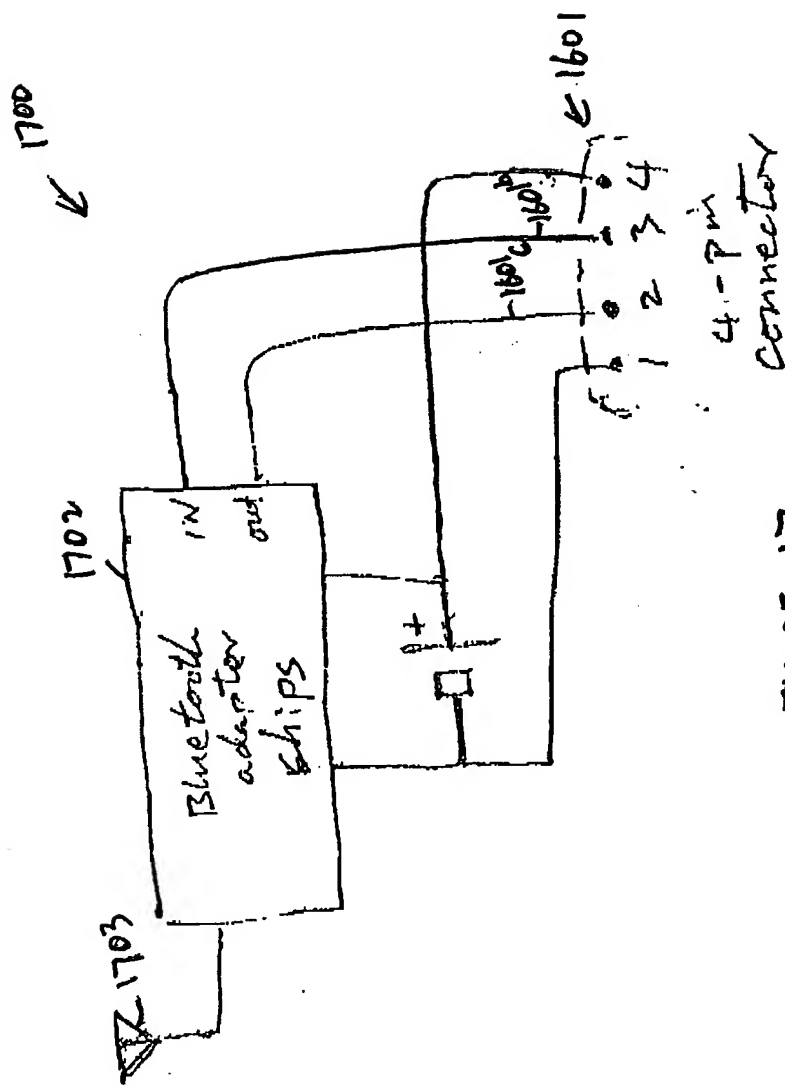 1700
1702
1703
Bluetooth
adapter
chips
IN
out
+
1601c
1601b
1601
1 2 3 4
4-pin
connector